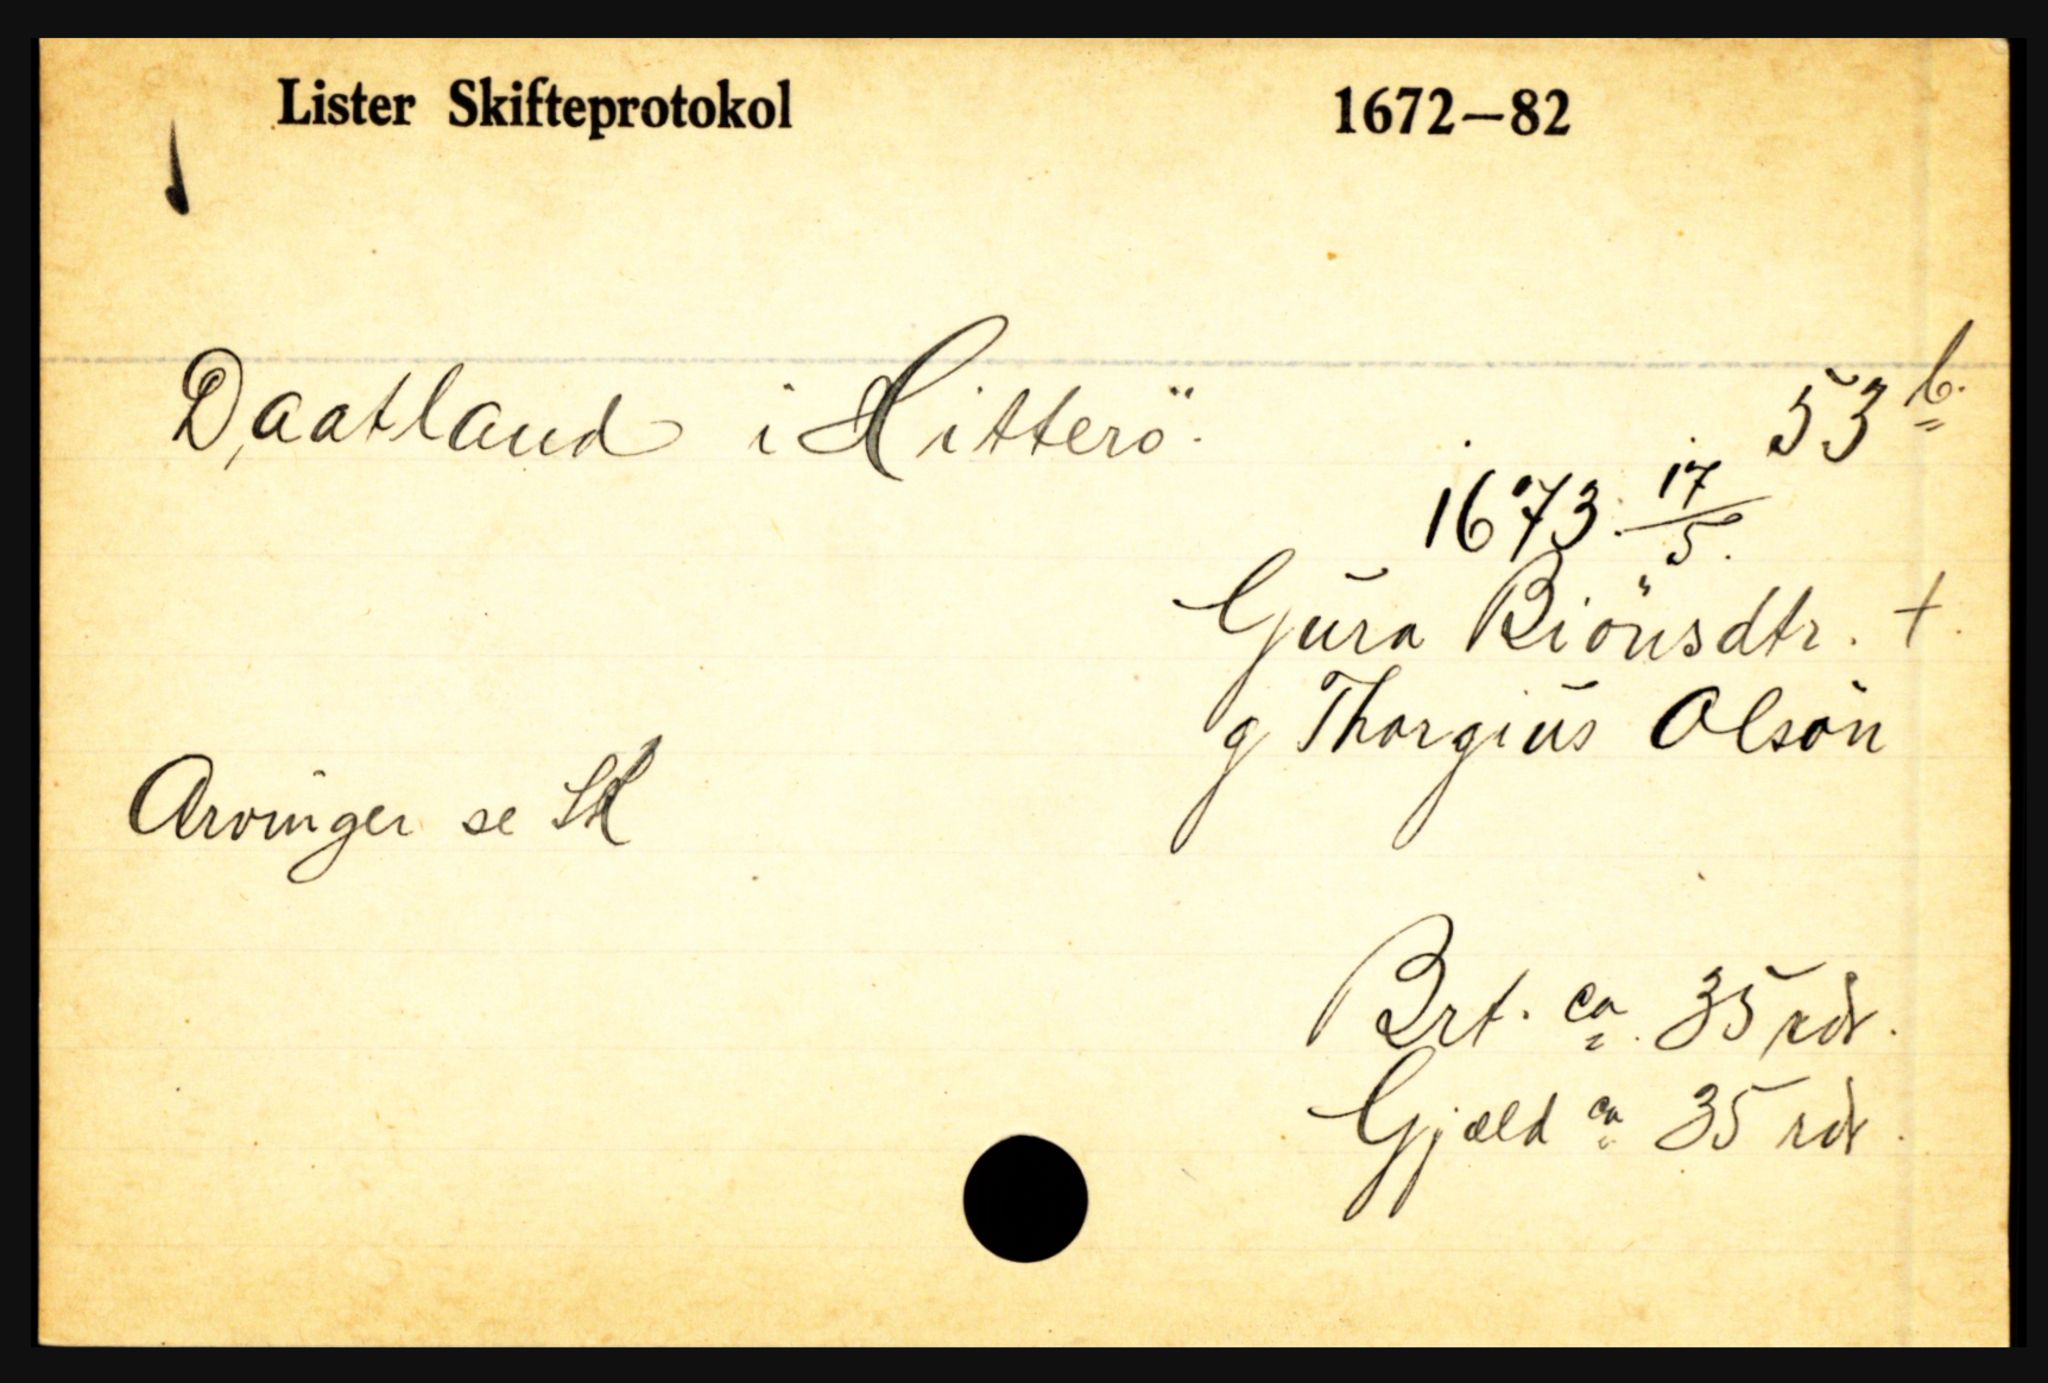 Lister Skifteprotokol 1672–82
Daatland i Hitterö. 53 b.
1673 17/5.
Gura Biönsdtr. +
g Thorgius Olsön
Arvinger se SK
Brt. ca. 35 rdr.
Gjæld ca 35 rdr.